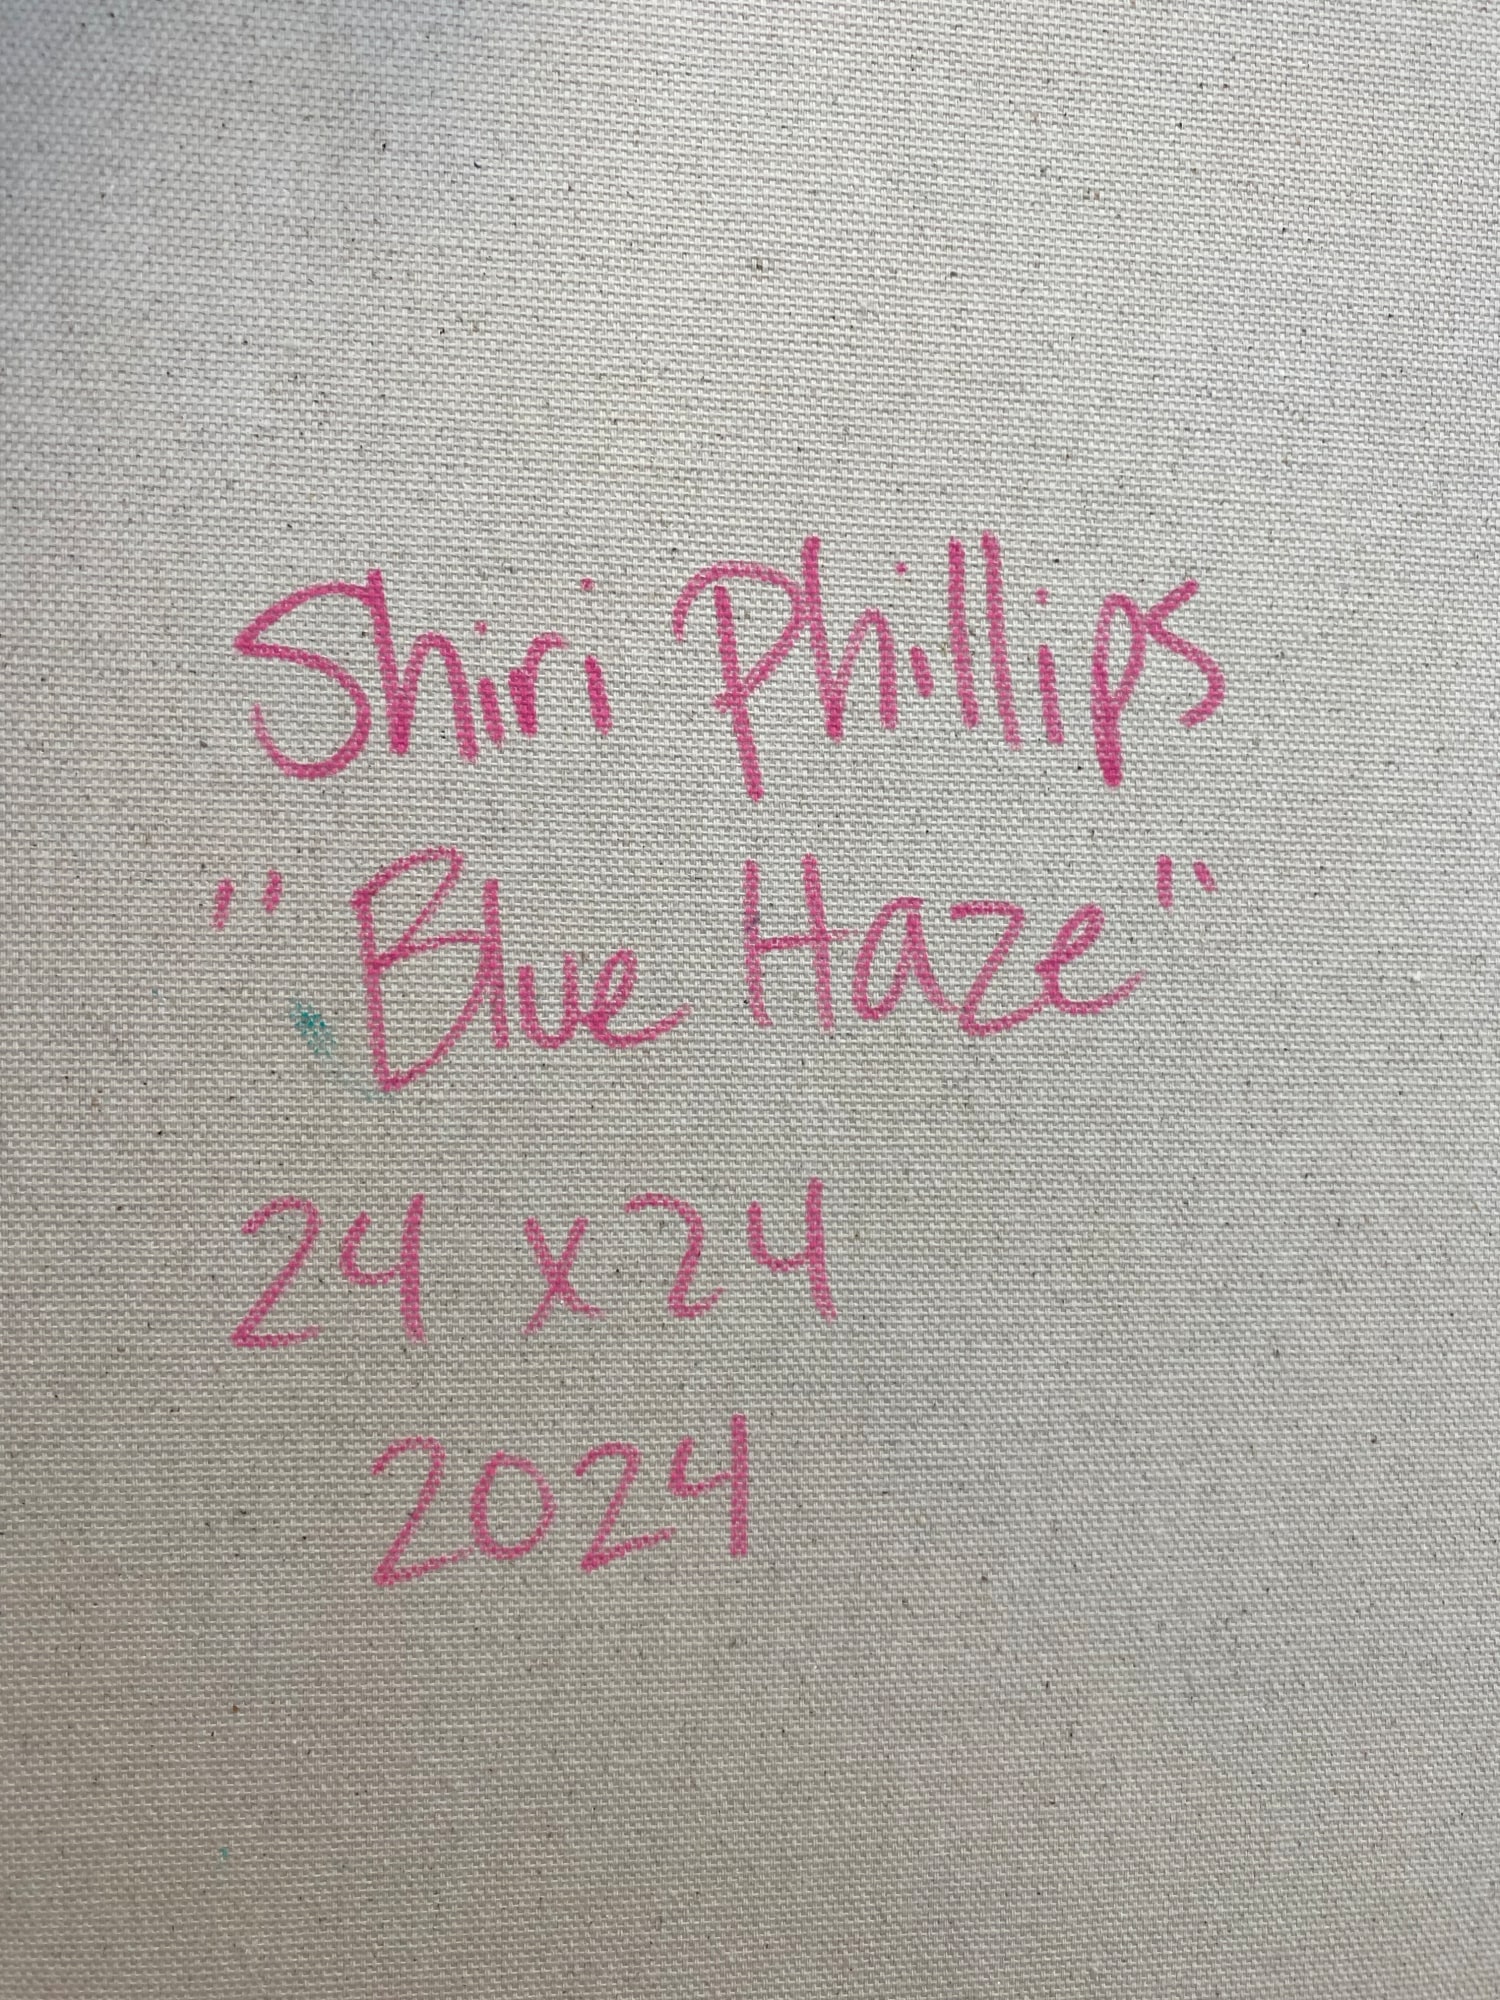 Shiri Phillips
"Blue Haze"
24 x 24
2024